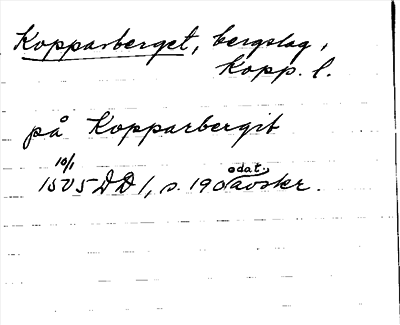 Kopparberget, bergslag,
Kopp. l.
på Kopparbergit
10/1
odat.
1505 DD 1, s. 190 avskr.